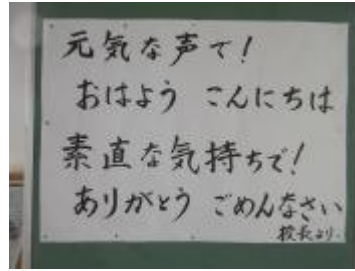 元気な声で!
おはよう こんにちは
素直な気持ちで!
ありがとう ごめんなさい
校長より